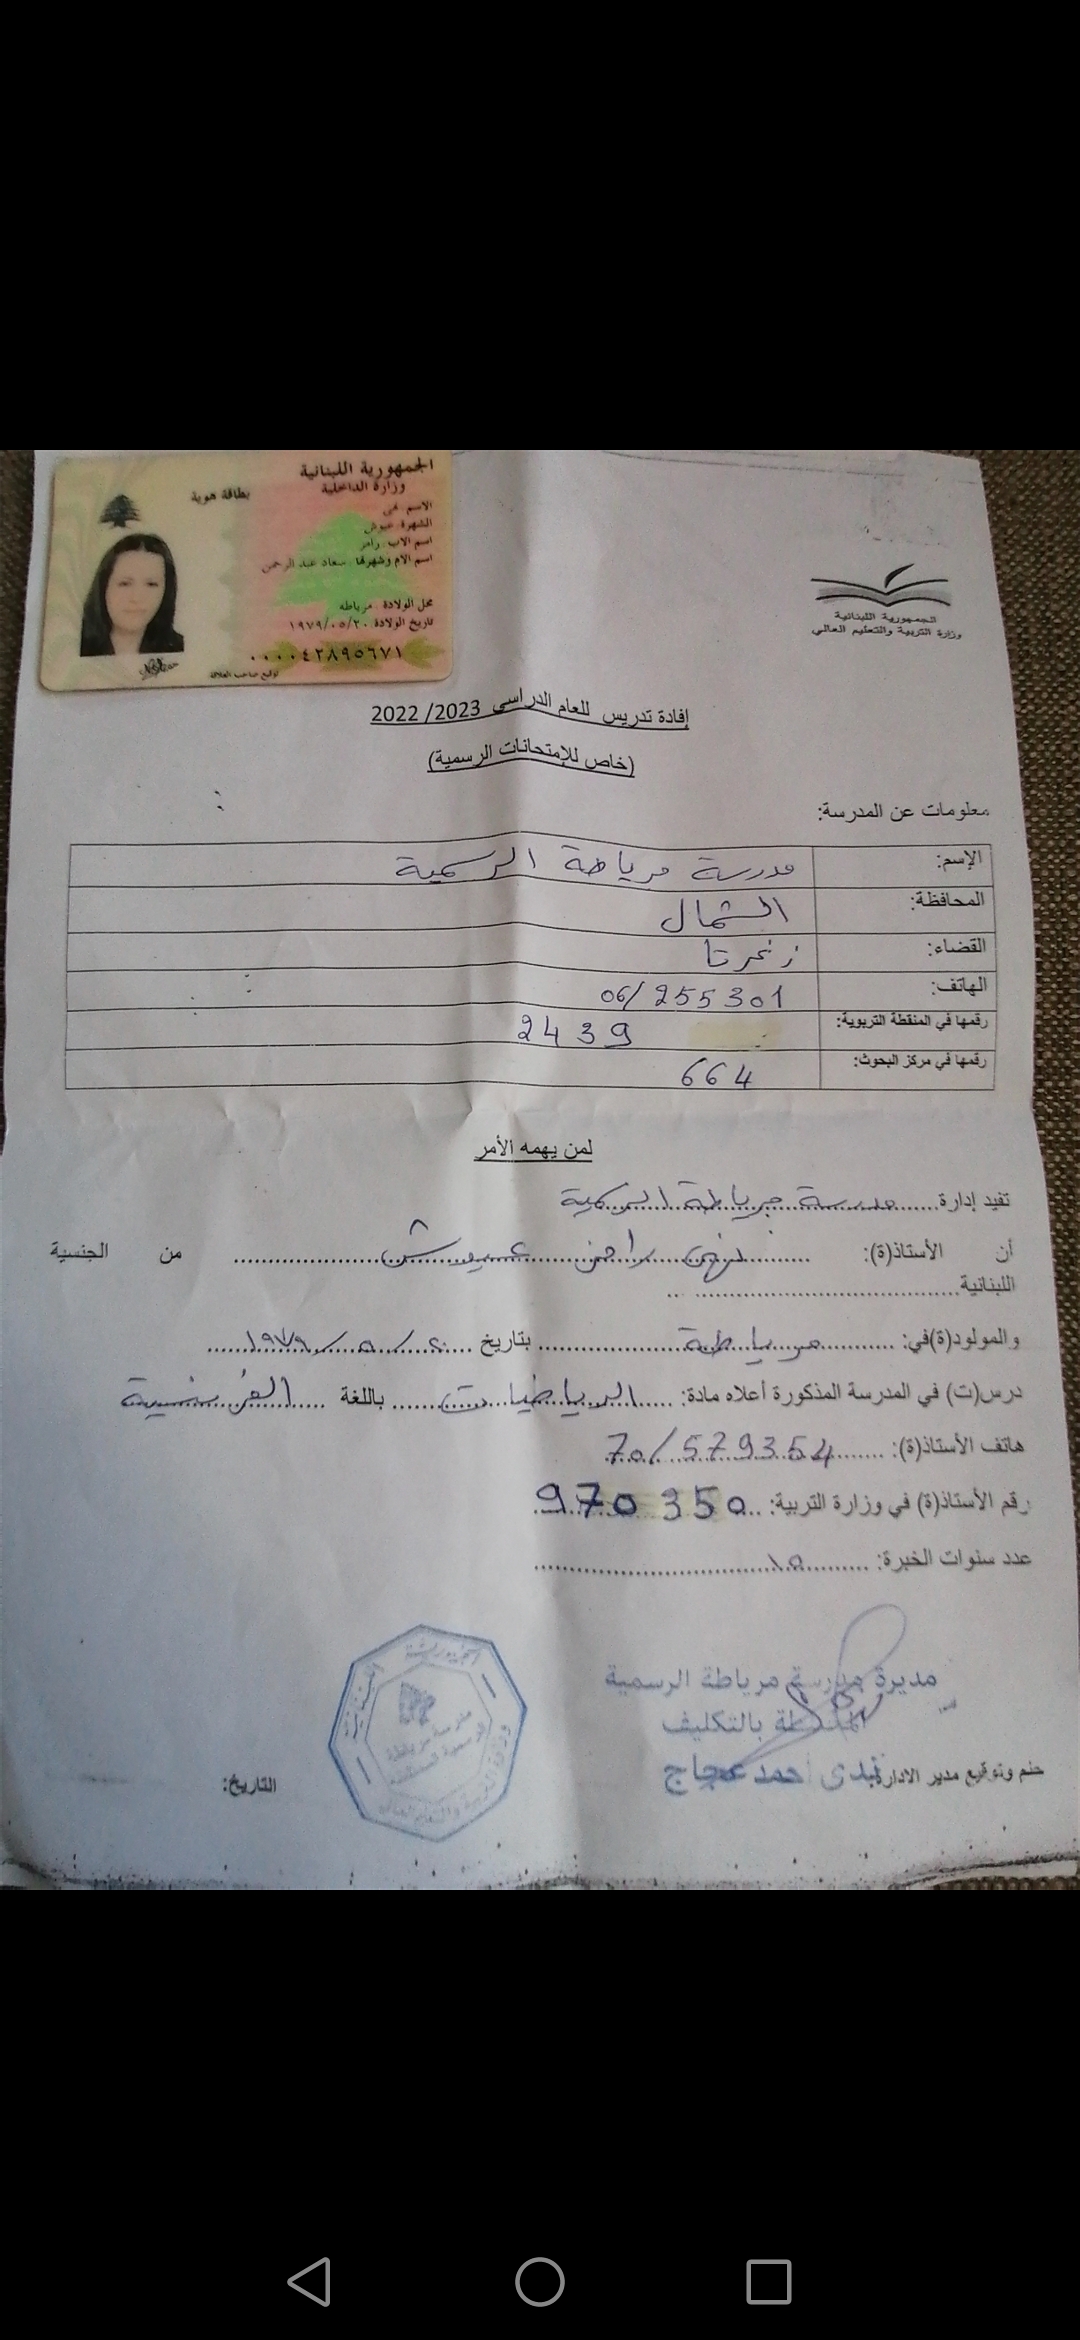 الجمهورية اللبنانية
وزارة الداخلية
بطاقة هوية
الاسم
الشهرة عبوش
اسم الاب رامز
اسم الام وشهرتها سعاد عبد الرحمن
محل الولادة مرياطه
تاريخ الولادة ١٩٧٩/٠٥/٢٠
٠٠٠٠٤٢٨٩٥٦٧١
توقيع صاحب العلاقة
الجمهورية اللبنانية
وزارة التربية والتعليم العالي
إفادة تدريس للعام الدراسي 2023/ 2022
(خاص للإمتحانات الرسمية)
معلومات عن المدرسة:
الإسم: مدرسة مرياطة الرسمية
المحافظة: الشمال
القضاء: زغرتا
الهاتف: 06/255301
رقمها في المنقطة التربوية: 2439
رقمها في مركز البحوث: 664
لمن يهمه الأمر
تفيد إدارة مدرسة مرياطة الرسمية
أن الأستاذ(ة): عبوش من الجنسية
اللبنانية
والمولود(ة)في: مرياطة بتاريخ ٢٠/٥/١٩٧٩
درس(ت) في المدرسة المذكورة أعلاه مادة: الرياضيات باللغة الفرنسية
هاتف الأستاذ(ة): 70/579354
رقم الأستاذ(ة) في وزارة التربية: 970350
عدد سنوات الخبرة: ١٥
مديرة مدرسة مرياطة الرسمية
بالتكليف
ختم وتوقيع مدير الادارة: احمد عجاج
التاريخ: